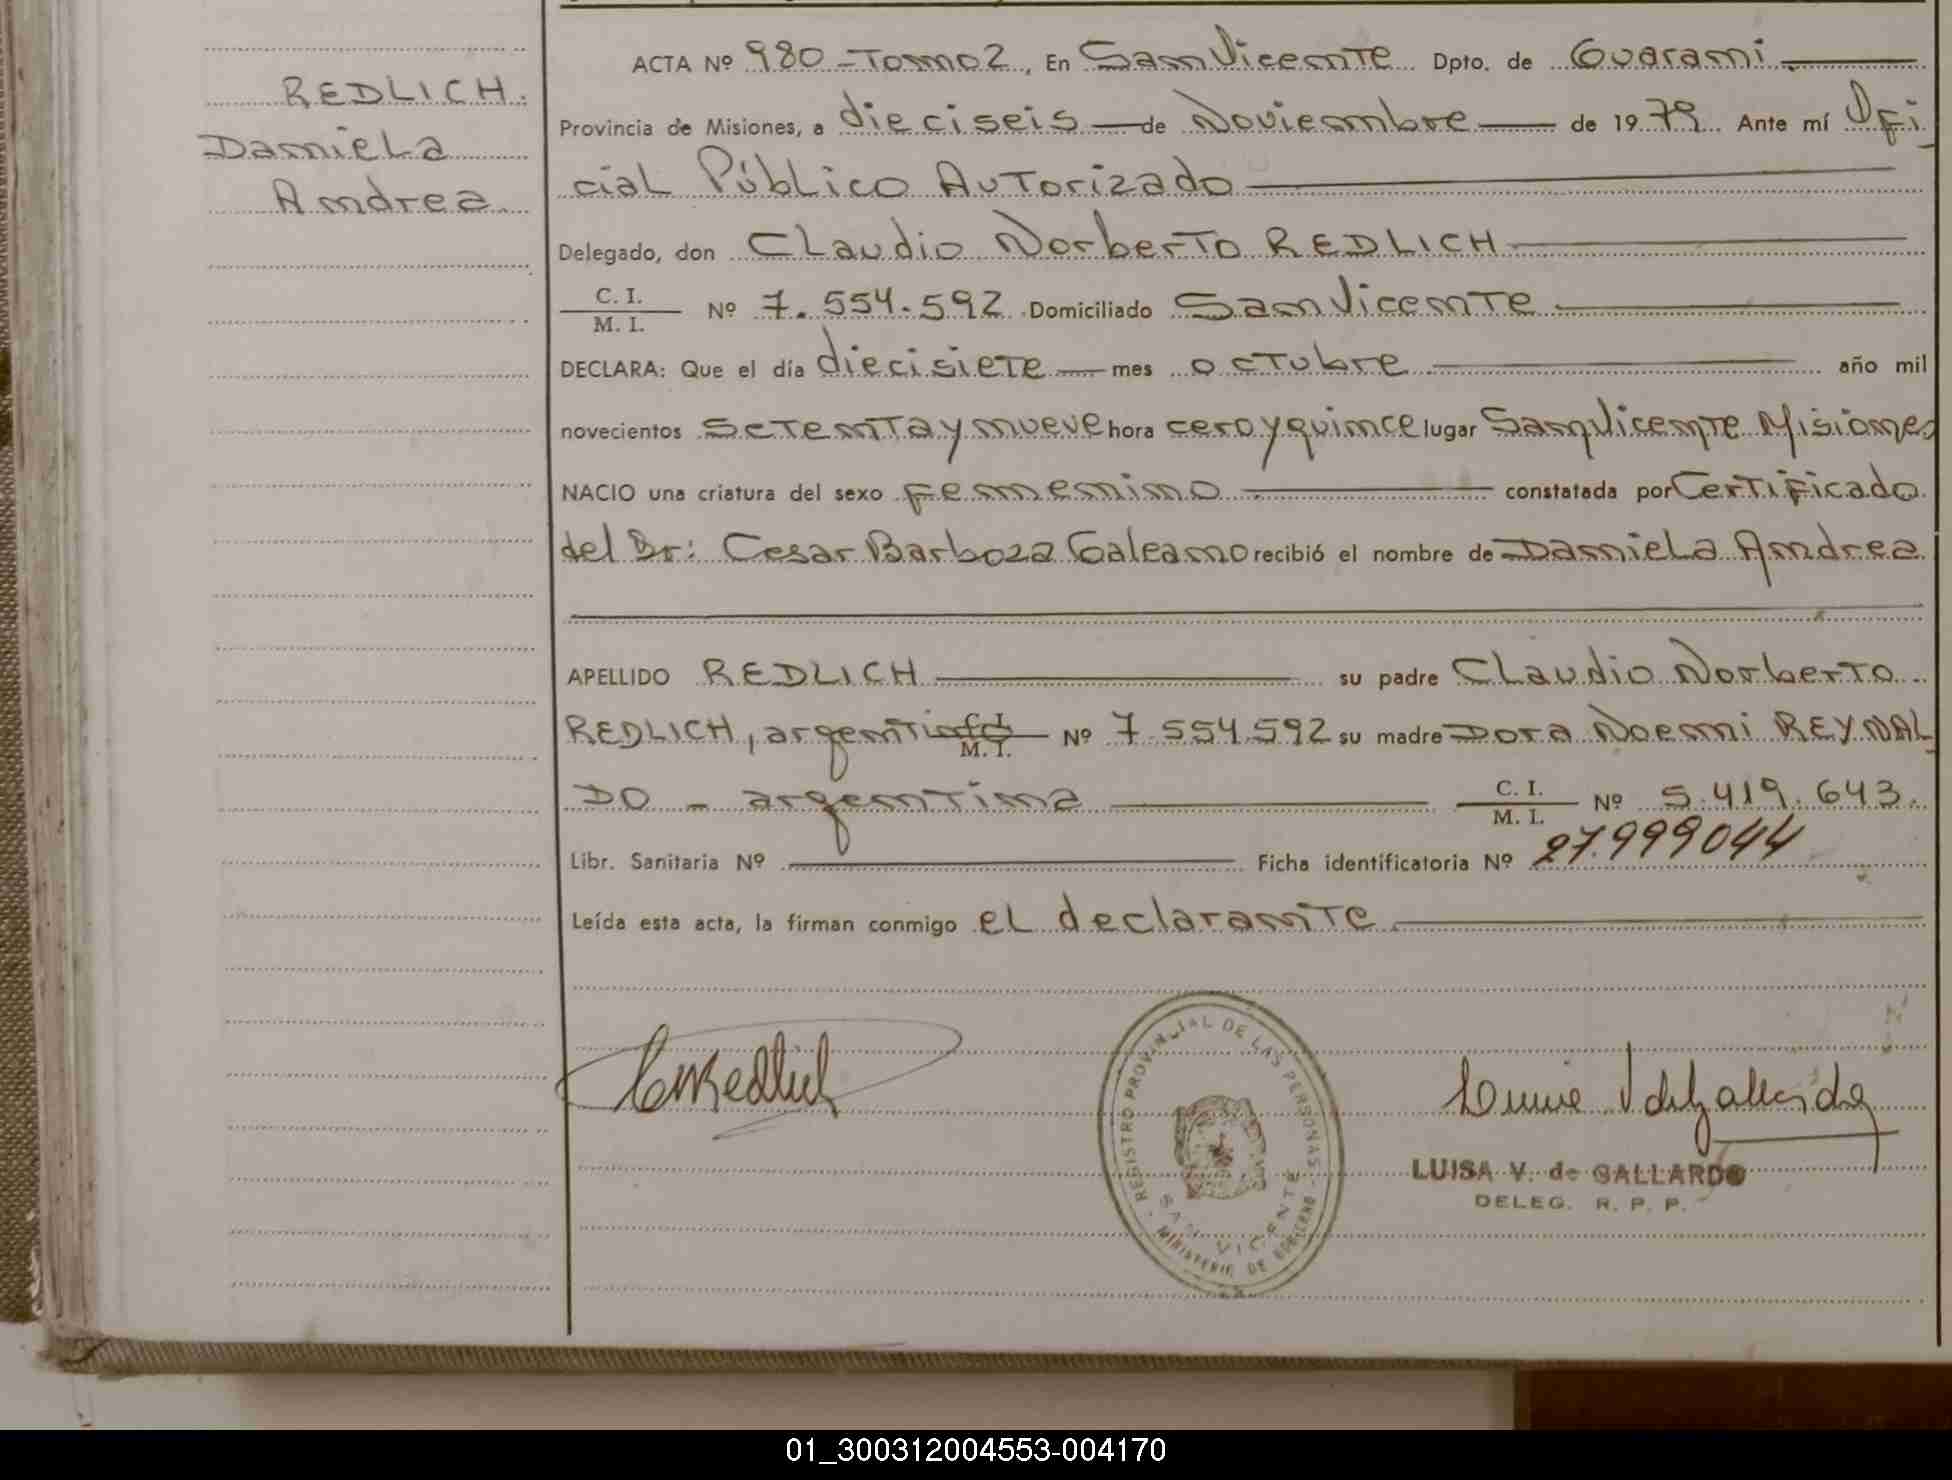 REDLICH.
Daniela
Andrea.
ACTA Nº 980 - Tomo 2, En San Vicente Dpto. de Guarani
Provincia de Misiones, a dieciseis de Noviembre de 1979 Ante mí Ofi
cial Público Autorizado
Delegado, don Claudio Norberto REDLICH
C. I.
M. I.
Nº 7.554.592 Domiciliado San Vicente
DECLARA: Que el día diecisiete mes octubre año mil
novecientos setenta y nueve hora cero y quince lugar San Vicente Misiones
NACIO una criatura del sexo femenino constatada por Certificado
del Dr: Cesar Barboza Galeano recibió el nombre de Daniela Andrea
APELLIDO REDLICH su padre Claudio Norberto
REDLICH, argentino C. I. M. I. Nº 7.554.592 su madre Dora Noemi REYNAL
DO - argentina C. I. M. I. Nº 5.419.643.
Libr. Sanitaria Nº Ficha identificatoria Nº 27.999044
Leída esta acta, la firman conmigo el declarante
CNRedlich
REGISTRO PROVINCIAL DE LAS PERSONAS
SAN VICENTE
MINISTERIO DE GOBIERNO
LUISA V. de GALLARDO
DELEG. R. P. P.
01_300312004553-004170